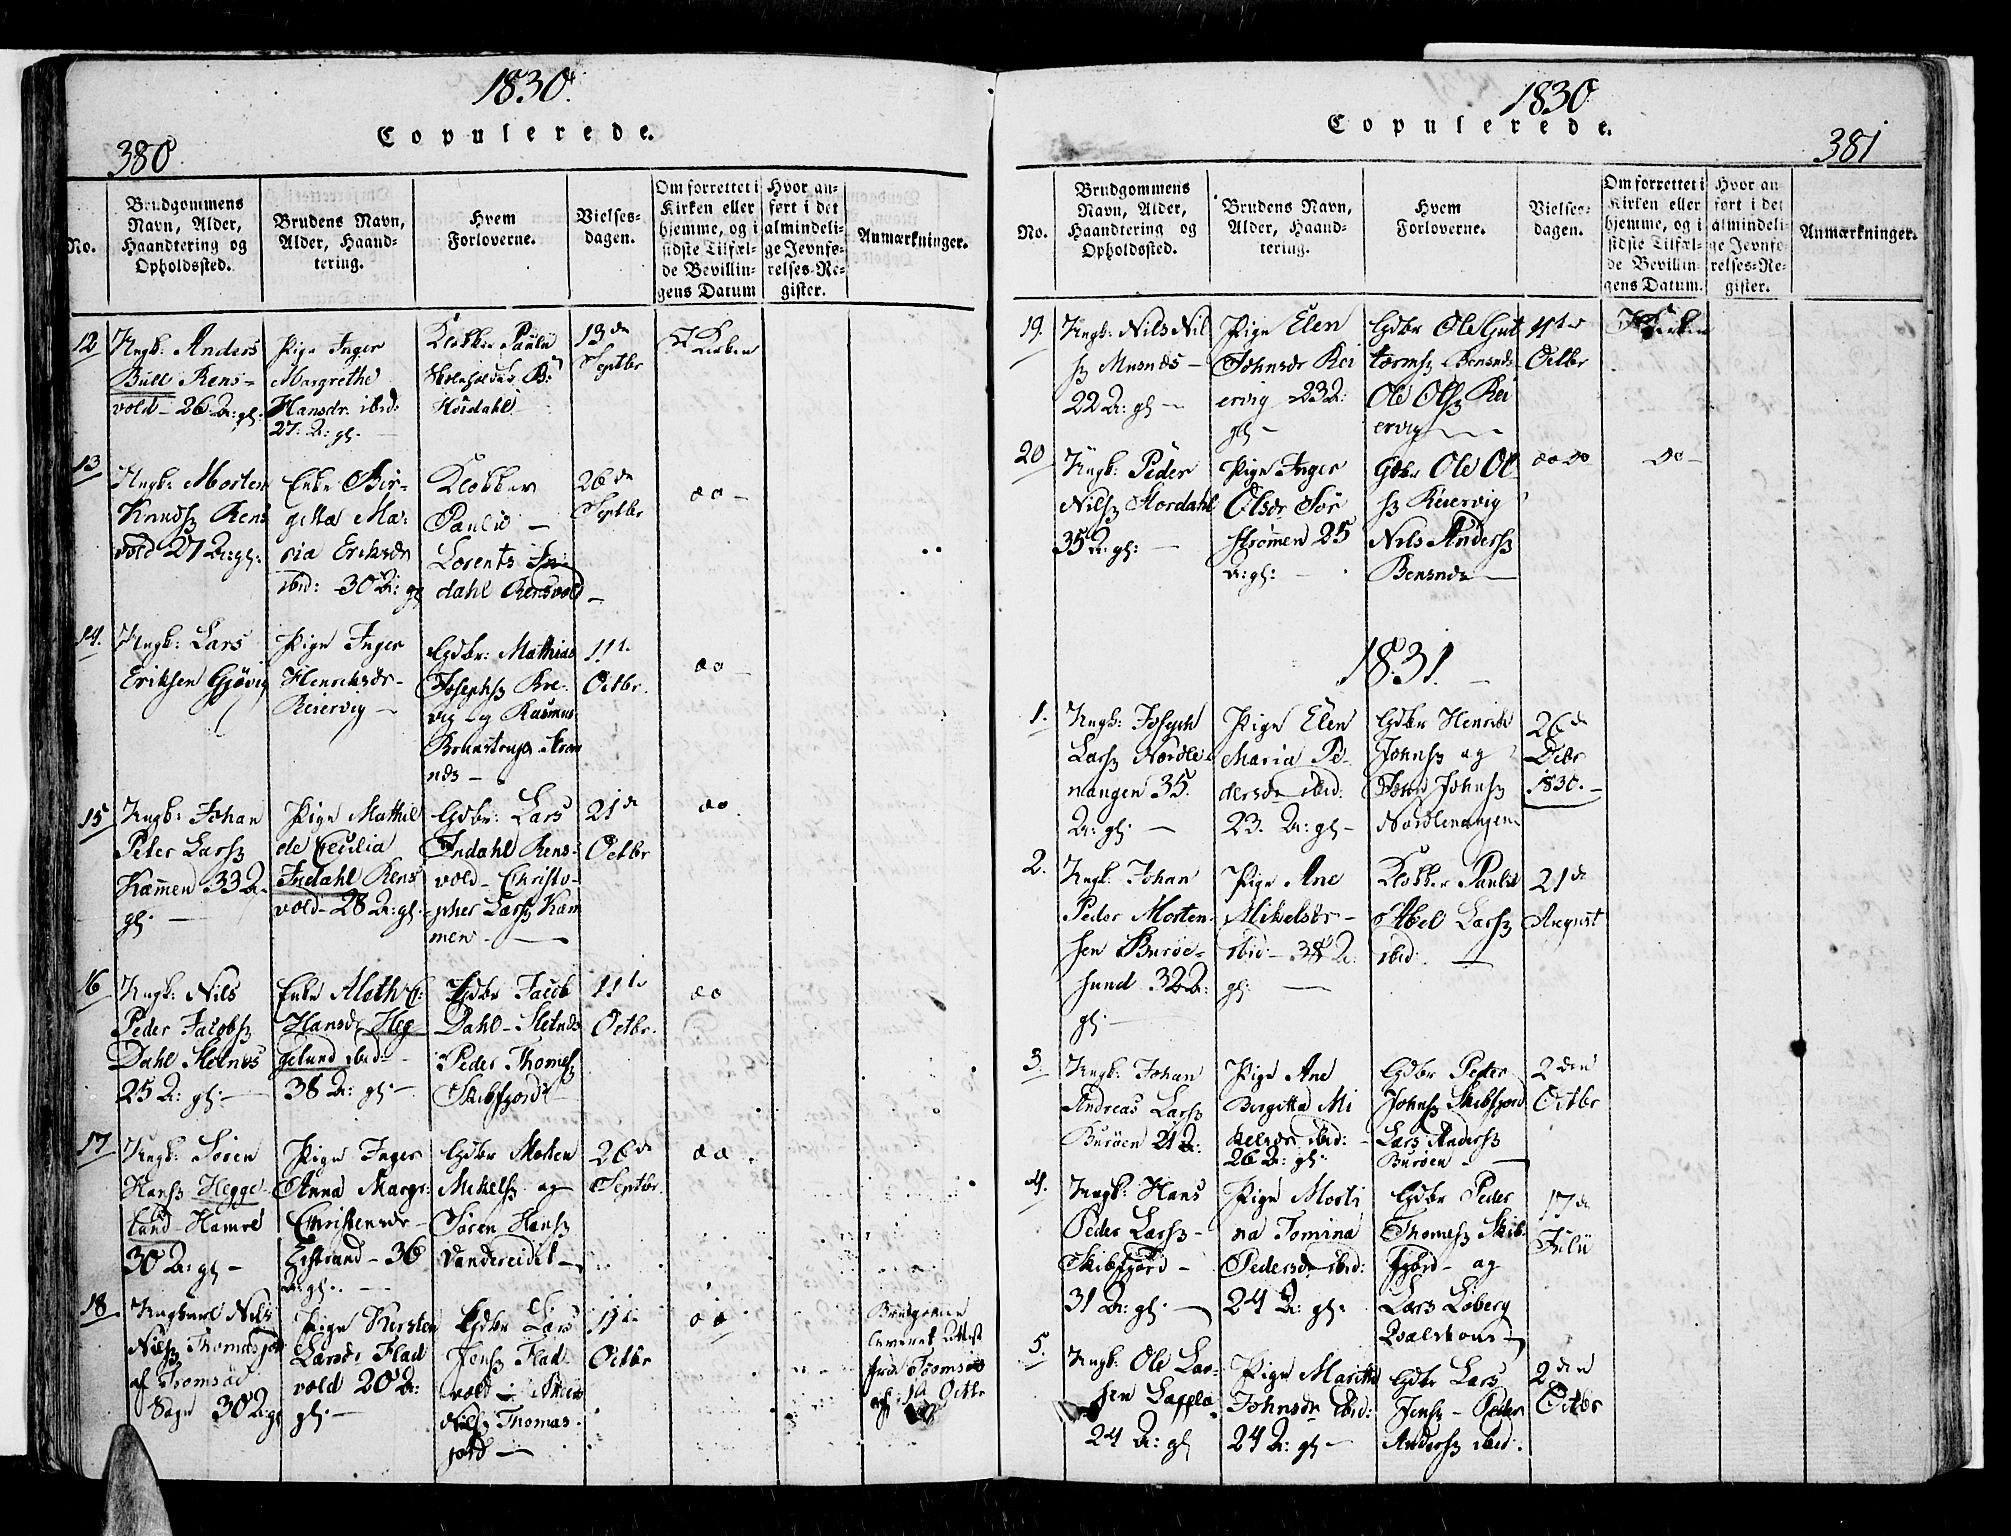 1830.
Copulerede.
380
No.
Brudgommens
Navn, Alder,
Haandtering og
Opholdssted.
Brudens Navn,
Alder, Haand-
tering.
Hvem
Forloverne.
Vielses-
dagen.
Om forrettet i
Kirken eller
hjemme, og i
sidste Tilfæl-
de Bevillin-
gens Datum
Hvor an-
ført i det
almindeli-
ge Jevnfø-
relses-Re-
gister.
Anmærkninger.
12
Ungk: Anders
Bull Rens-
vold - 26 A: gl.
Pige Inger
Margrethe
Hansdr. ibid:
27. A: gl. -
Klokker Paulin
Høidahl
13de
Septbr
I Kirken
13
Ungk: Morten
Knuds Rens
vold 27 A: gl:
Enke Bir-
gitta Ma-
ria Eriksdr
ibid: 30 A: gl
Klokker
Paulin -
Lorents In-
dahl Rensvold -
26de
Septbr
do -
14.
Ungk: Lars
Eriksen Gjøvig
Pige Inger
Henriksdr -
Reiervig -
Gdbr: Mathias
Josephs Kre-
vig og Rasmus
nds -
11te
Octbr.
do -
15
Ungk: Johan
Peter Lars
Kammen 33 A.
gl. -
Pige Mathil
de Cecilia
Indahl Rens
vold - 28 A: gl.
Gdbr: Lars
Indahl Rens-
vold - Christo-
pher Lars Kam
men. -
21de
Octbr
do.
16
Ungk: Nils
Peder Jacobs
Dahl Sletnæs
25 A: gl: -
Enke Aleth C:
Hansdr Heg
gelund ibid: -
38 A: gl -
Gdbr Jacob
Dahl - Sletnds
Peder Thomes
Skibsfjord -
11te
Octbr.
do
17
Ungk: Søren
Hans Hegge-
lund Hamre
30 A: gl -
Pige Inger
Anna Margr:
Christensdr -
Eistrand - 36
A: gl. -
Gdbr Morten
Mikels og
Søren Hans
Vandereidet -
26de
Septbr.
do.
18.
Ungkarl Nils
Nils Thomasjord
af Tromsøe
Sogn 30 A: gl
Pige Kirsten
Larsdr Flad
vold 20 A:
gl: -
Gdbr Lars
Jens Flad-
vold -
Nils Thomas-
jord -
11te
Octbr
do
Brudgommen
leveret Attest
fra Tromsøe
af Octbr
1830
Copulerede.
381
No.
Brudgommens
Navn, Alder,
Haandtering og
Opholdssted.
Brudens Navn,
Alder, Haand-
tering.
Hvem
Forloverne.
Vielses-
dagen.
Om forrettet i
Kirken eller
hjemme, og i
sidste Tilfæl-
de Bevillin-
gens Datum.
Hvor an
ført i det
almindeli-
ge Jevnfø-
relses-Re-
gister.
Anmærkninger.
19.
Ungk: Nils Nil
s Musnds -
22 A: gl -
Pige Elen
Johnsdr Rei
ervig - 23 A:
gl -
Gdbr Ole Gut
torms Bensnds -
Ole Ols Rei
ervig -
11te
Octbr
I Kirken
20
Ungk: Peder
Nils Stordahl
35 A: gl: -
Pige Inger
Olsdr Sør
strømen 25
A: gl: -
Gdbr Ole Ol
s Reiervig
Nils Anders
Bensnds -
do do
do -
1831. -
1.
Ungk: Joseph
Lars Nordle-
nangen 35.
A: gl. -
Pige Elen
Maria Pe-
dersdr ibid:
23. A: gl -
Gdbr Henrik
Johns og
John Johns
Nordlenangen.
26de
Decbr
1830. -
2.
Ungk: Johan
Peder Morten-
sen Burøe-
sund 32 A:
gl: -
Pige Ane
Mikelsdr -
ibid - 38 A:
gl: -
Klokker Paulin
Abel Lars
ibid. -
21de
August
3.
Ungk: Johan
Andreas Lars
Burøen 21 A:
Pige Ane
Birgitta Mi
kelsdr ibid: -
26 A: gl.
Gdbr Peder
Johns Skibsfjord
Lars Anders
Burøen -
2den
Octbr
4.
Ungk: Hans
Peder Lars -
Skibsfjord -
31 A: gl. -
Pige Morti
na Tomina
Pedersdr ibid:
24 A: gl.
Gdbr Peder
Thomes Skibs
fjord - og
Lars Loberg
17de
Julii
5.
Ungk: Ole Lar-
sen
24 A: gl
Pige Maritte
Johnsdr ibid:
24 A: gl -
Gdbr Lars
Jens - Peder
Anders ibid.
2den
Octbr